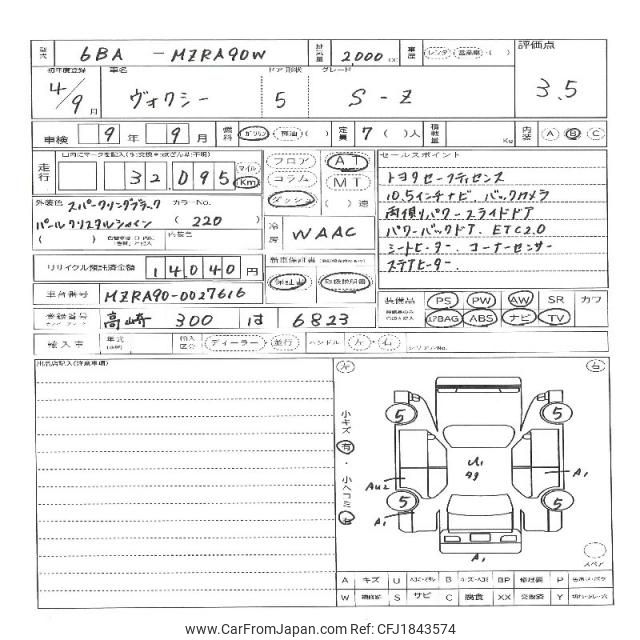 型式 6BA - MZRA90W 排気量 2,000 cc 車歴 レンタ 営業車 ( ) 評価点
初年度登録 4/9月 車名 ヴォクシー ドア形状 5 グレード S-Z 3.5
車検 9年 9月 燃料 ガソリン 軽油 ( ) 定員 7 ( )人 積載量 Kg 内装 A B C
走行 32,095 マイル Km フロア コラム ダッシュ AT MT ( )速
外装色 スパークリングブラック パールクリスタルシャイン カラーNo. (220)
( ) 内装色 冷房 WAAC
リサイクル預託済金額 14,040円 新車保証書 保証書 取扱説明書
セールスポイント
トヨタセーフティセンス
10.5インチナビ、バックカメラ
両側パワースライドドア
パワーバックドア、ETC2.0
シートヒーター、コーナーセンサー
ステアヒーター、
車台番号 MZRA90-0027616
装備品 PS PW AW SR カワ
エアBAG ABS ナビ TV
登録番号 高崎 300 は 6823
輸入車 年式 輸入区分 ディーラー・並行 ハンドル 左・右 シリアルNo.
出品店記入(注意事項)
左 右
小キズ 有・小ヘコミ 有
5 5
U1
49
AU2 A1
5 5
A1
A1
スペア
A キズ U B BP P
W S サビ C 腐食 XX 交換済 Y
www.CarFromJapan.com - CFJ1843574